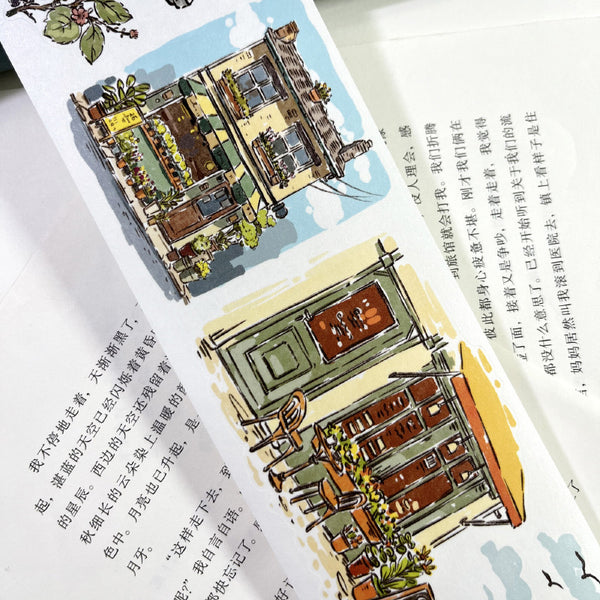 我不停地走着，天渐渐黑了，
起，湛蓝的天空已经闪烁着黄昏
的星辰。西边的天空还残留着
秋细长的云朵染上温暖的颜
色中。月亮也已升起，是
月牙。
“这样走下去，到
呢？”我自言自语。
都快忘记了。
没人理会，感
到旅馆就会打我。我们折腾
彼此都身心疲惫不堪。刚才我们俩在
了面，接着又是争吵，走着走着，我觉得
都没什么意思了。已经开始听到关于我们的流
，妈妈居然叫我滚到医院去，镇上看样子是住